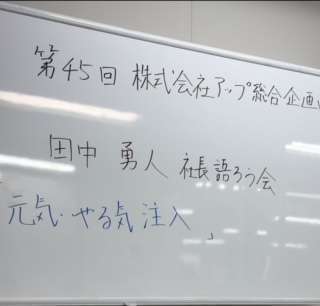 第45回 株式会社アップ総合企画
田中 勇人 社長語ろう会
元気・やる気 注入